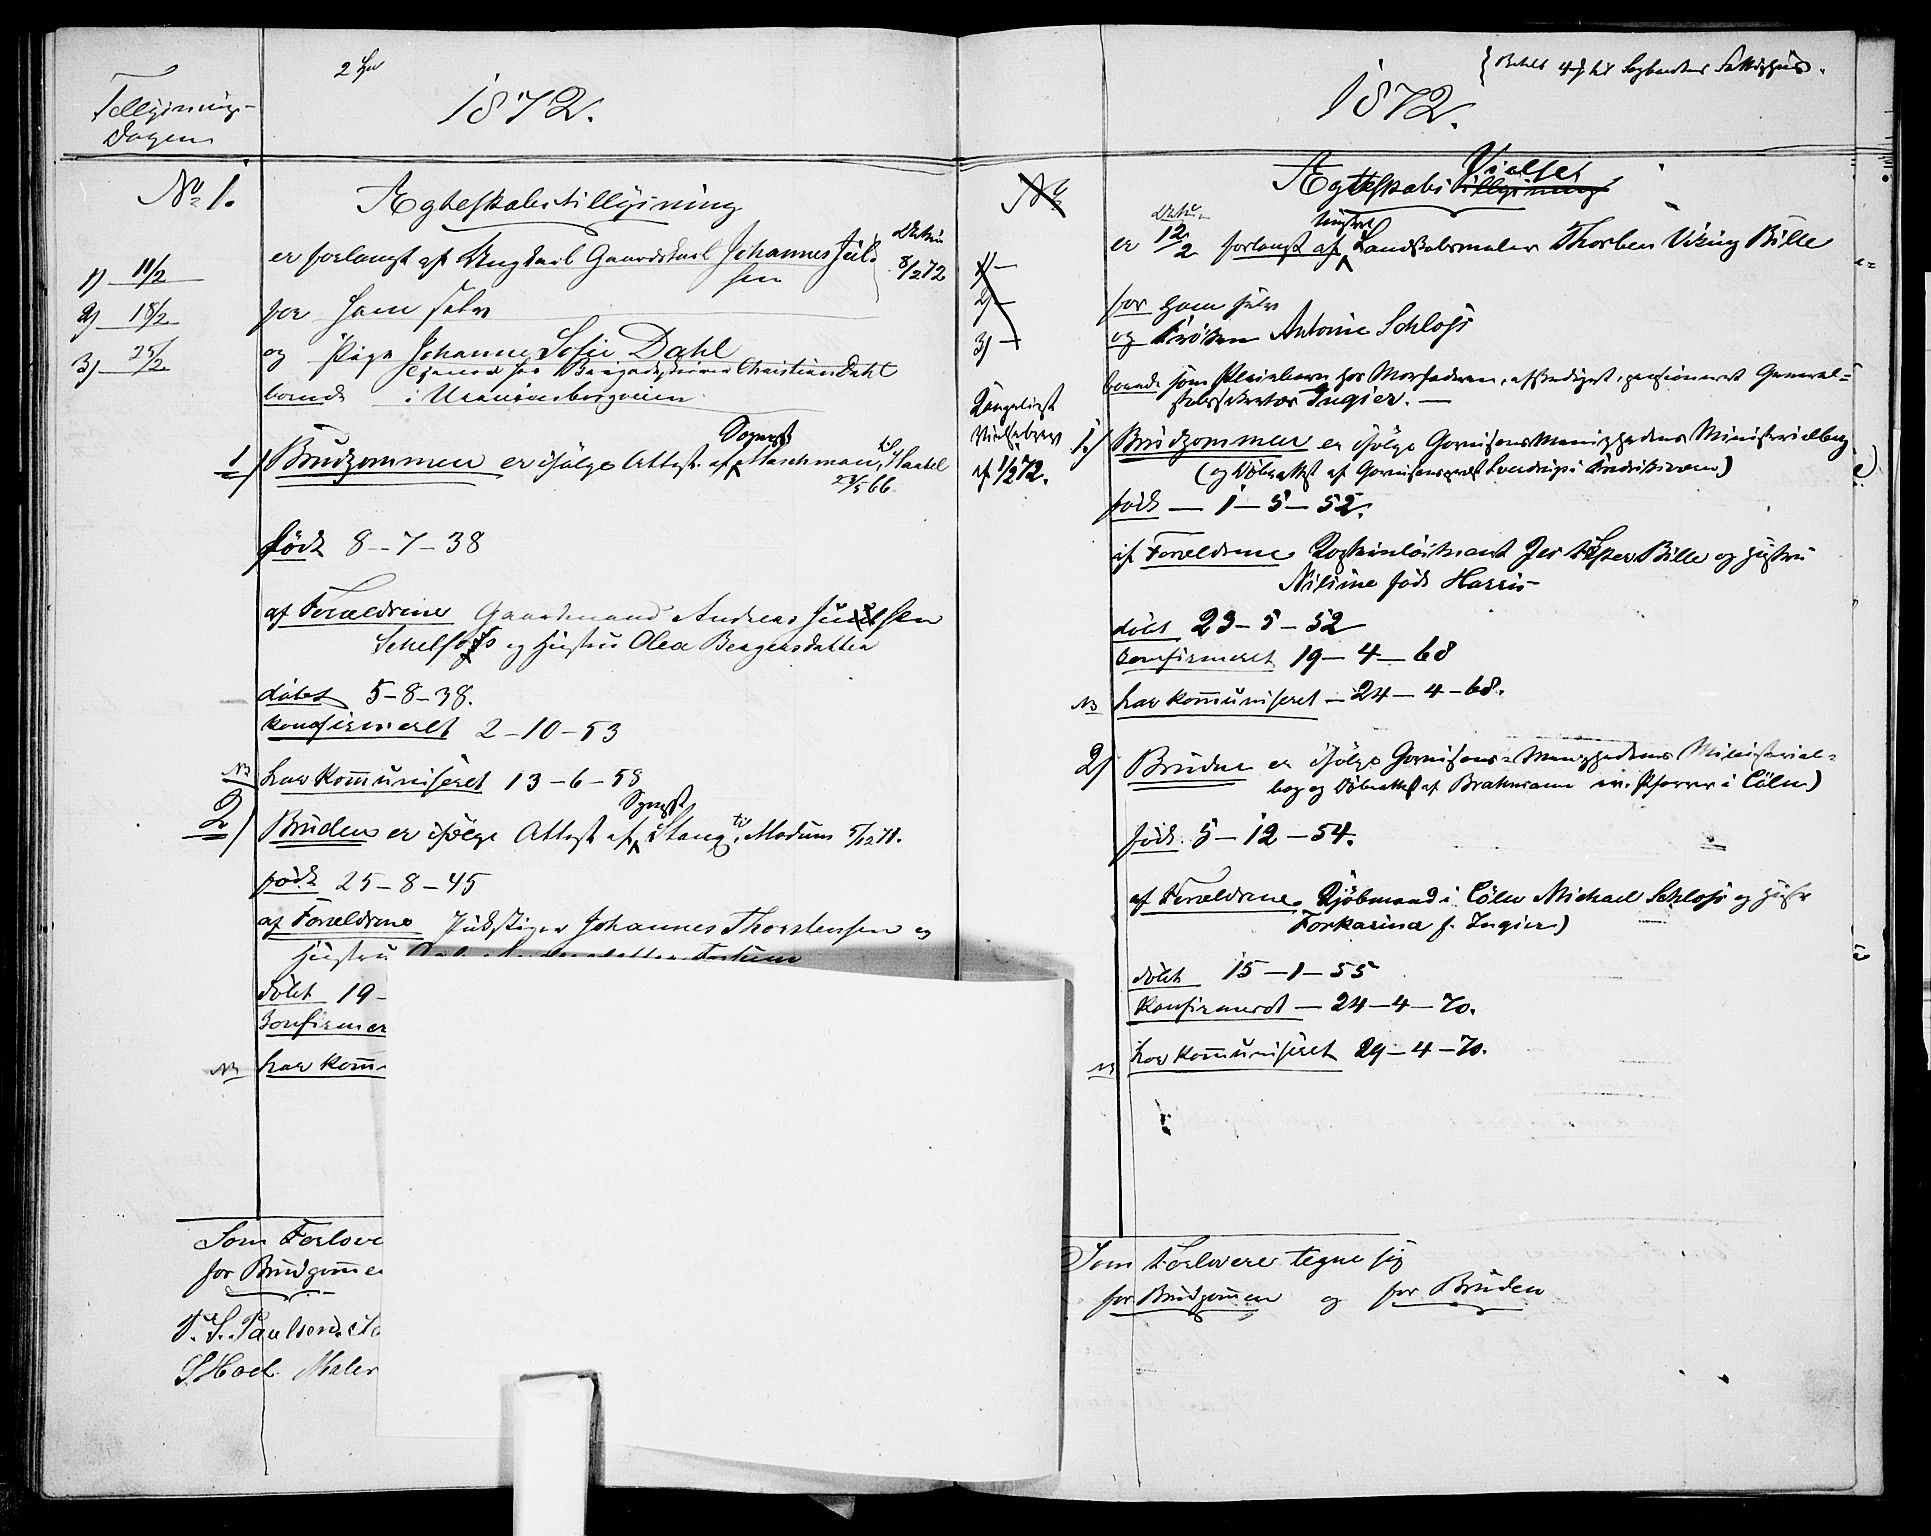 Tillysnings-
Dagen
2
1872.
No 1.
Ægteskabstillysning
1) 11/2
2) 18/2
3) 25/2
er forlangt af Ungkarl Gaardskarl Johannes Juel-
sen
8/2 72
for ham selv
og Pige Johanne Sofie Dahl
Christian Dahl
boende i Uranienborgveien
1) Brudgommen er ifølge Attest af Sognepr. Maschman,
23/5 66
født 8-7-38
af Forældrene Gaardmand Andreas Juelsen
og Hustru Olea
døbt 5-8-38.
konfirmeret 2-10-53
NB har kommuniseret 13-6-58
2) Bruden er ifølge Attest af Sognepr. Stang til Modum 5/12 71.
født 25-8-45
af Forældrene Johannes Thorstensen og
Hustru
døbt 19-
Konfirmer
NB har komm-
Som Forlove
for Brudgomme
P. S. Paulsen
S. Hoel. Maler
1872.
No
Ægteskabs tillysning Vielse
1) —
2) —
3) —
er 12/2 forlangt af Landskabsmaler Thorben Viking Bille
for ham selv
og Frøken Antonie Schloss
boende som Pleiebarn hos Morfaderen, afskediget, pensioneret General-
stabssekretær Ingier. —
Kongeligt
Vielsebrev
af 1/2 72.
1) Brudgommen er ifølge Garnisons Menighedens Ministerialbog
(og Døbeattest af Garnisonspræst i Fredriksværn)
født — 1-5-52.
af Forældrene Bille og Hustru
født Harris
døbt 29-5-52
Konfirmeret 19-4-68
NB har kommuniseret — 24-4-68.
2) Bruden er ifølge Garnisons-Menighedens Ministerial-
bog og Døbeattest af Brahmann ev. Pfarrer i Cöln)
født 5-12-54.
af Forældrene Kjøbmand i Cöln Michael Schloss og Hustr
Forkarina f. Ingier)
døbt 15-1-55
Konfirmeret — 24-4-70.
NB har kommuniseret 29-4-70.
Som Forlovere tegne sig
for Brudgommen og for Bruden